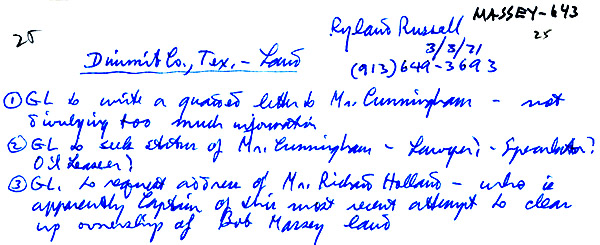 MASSEY-643
25
Ryland Russell
25
3/3/71
Dimmit Co., Tex. - Land
(913) 649-3693
① GL to write a guarded letter to Mr. Cunningham - not
divulging too much information
② GL to seek status of Mr. Cunningham - Lawyer? - Speculator?
Oil Leaser?
③ GL. to request address of Mr. Richard Holland - who is
apparently Captain of this most recent attempt to clear
up ownership of Bob Massey land